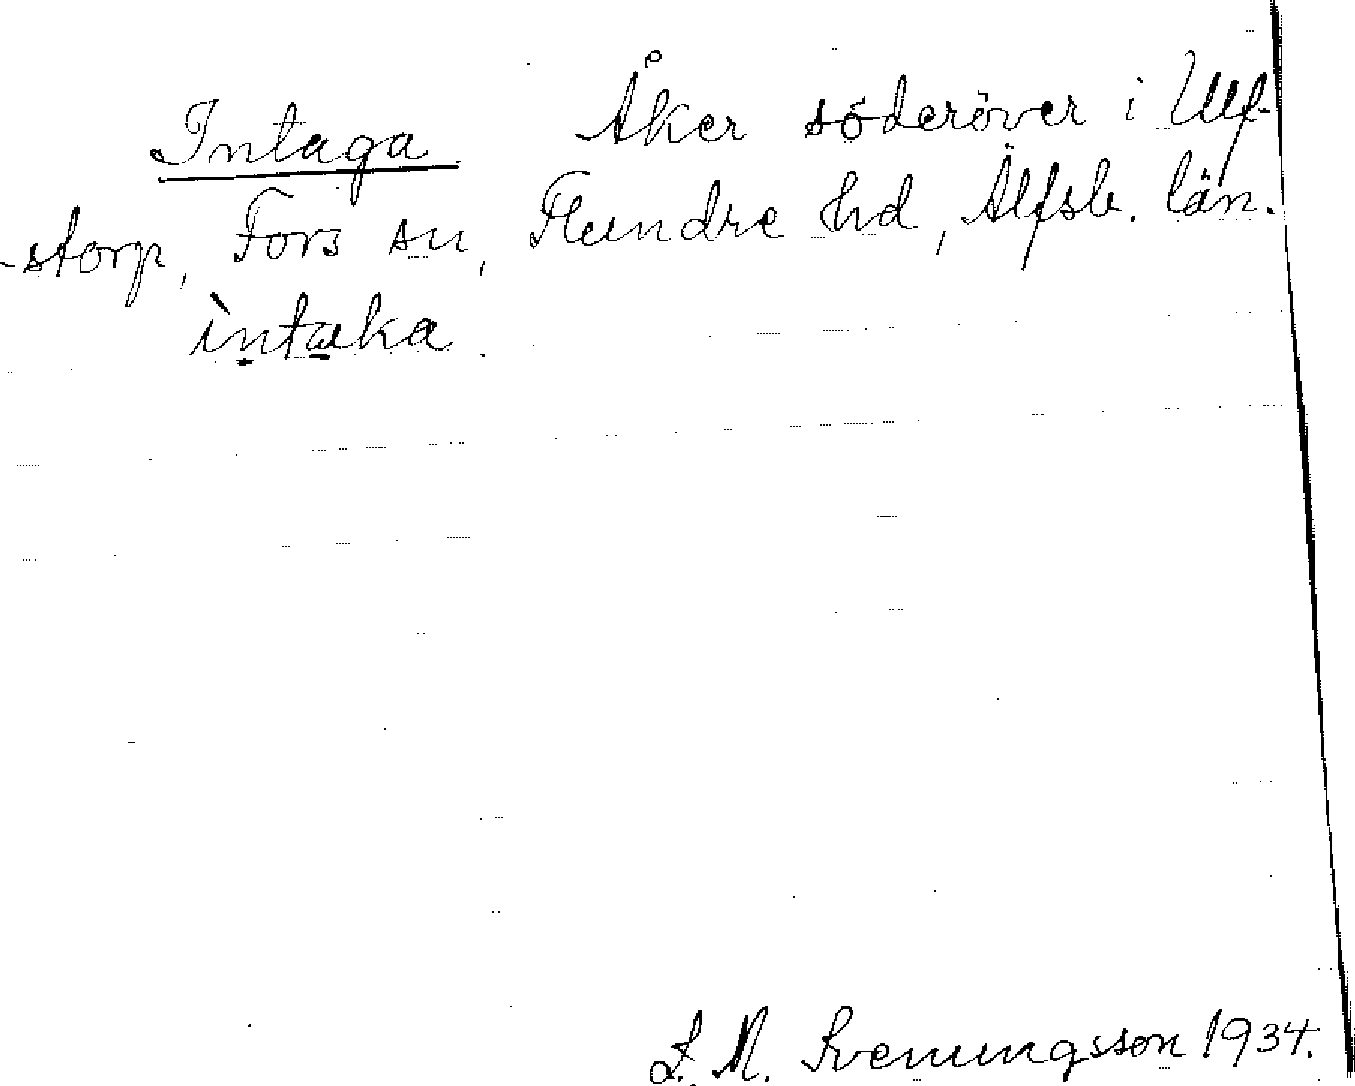 Intaga Åker söderöver i Ulf-
-storp, Fors sn, Flundre hd, Älfsb. län.
ìntaka.
L. M. Svenungsson 1934.